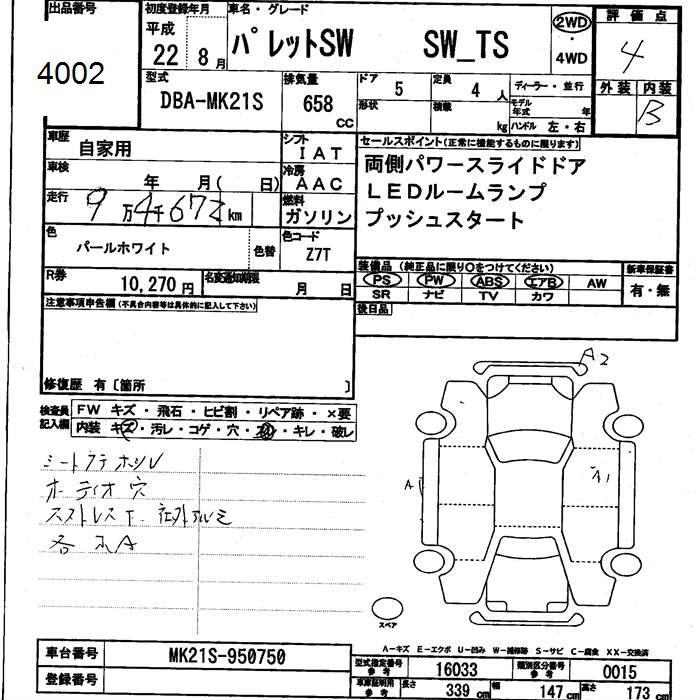 出品番号
4002
初度登録年月
平成
22 8月
車名・グレード
パレットSW SW_TS
2WD
・
4WD
評価点
4
型式
DBA-MK21S
排気量
658
CC
ドア 5
定員 4人
形状
積載 kg
ディーラー・並行
モデル年式 年
ハンドル 左・右
外装 内装
B
車歴 自家用
シフト IAT
車検 年 月( 日)
冷房 AAC
走行 9万4千672km
燃料 ガソリン
色 パールホワイト
色替
色コード Z7T
R券 10,270円
名変通知期限 月 日
セールスポイント(正常に機能するものに限ります)
両側パワースライドドア
LEDルームランプ
プッシュスタート
装備品 (純正品に限り○をつけてください)
PS PW ABS エアB AW
SR ナビ TV カワ
新車保証書
有・無
後日品
注意事項申告欄(不具合内容等は具体的に記入して下さい)
修復歴 有〔箇所 〕
検査員記入欄
FW キズ・飛石・ヒビ割・リペア跡・×要
内装 キズ・汚レ・コゲ・穴・スレ・キレ・破レ
オーディオ穴
A2
A1
A1
スペア
A-キズ E-エクボ U-凹み W-補修跡 S-サビ C-腐食 XX-交換済
車台番号 MK21S-950750
登録番号
型式指定番号 参考 16033
類別区分番号 参考 0015
車庫証明用 参考 長さ 339cm 幅 147cm 高さ 173cm